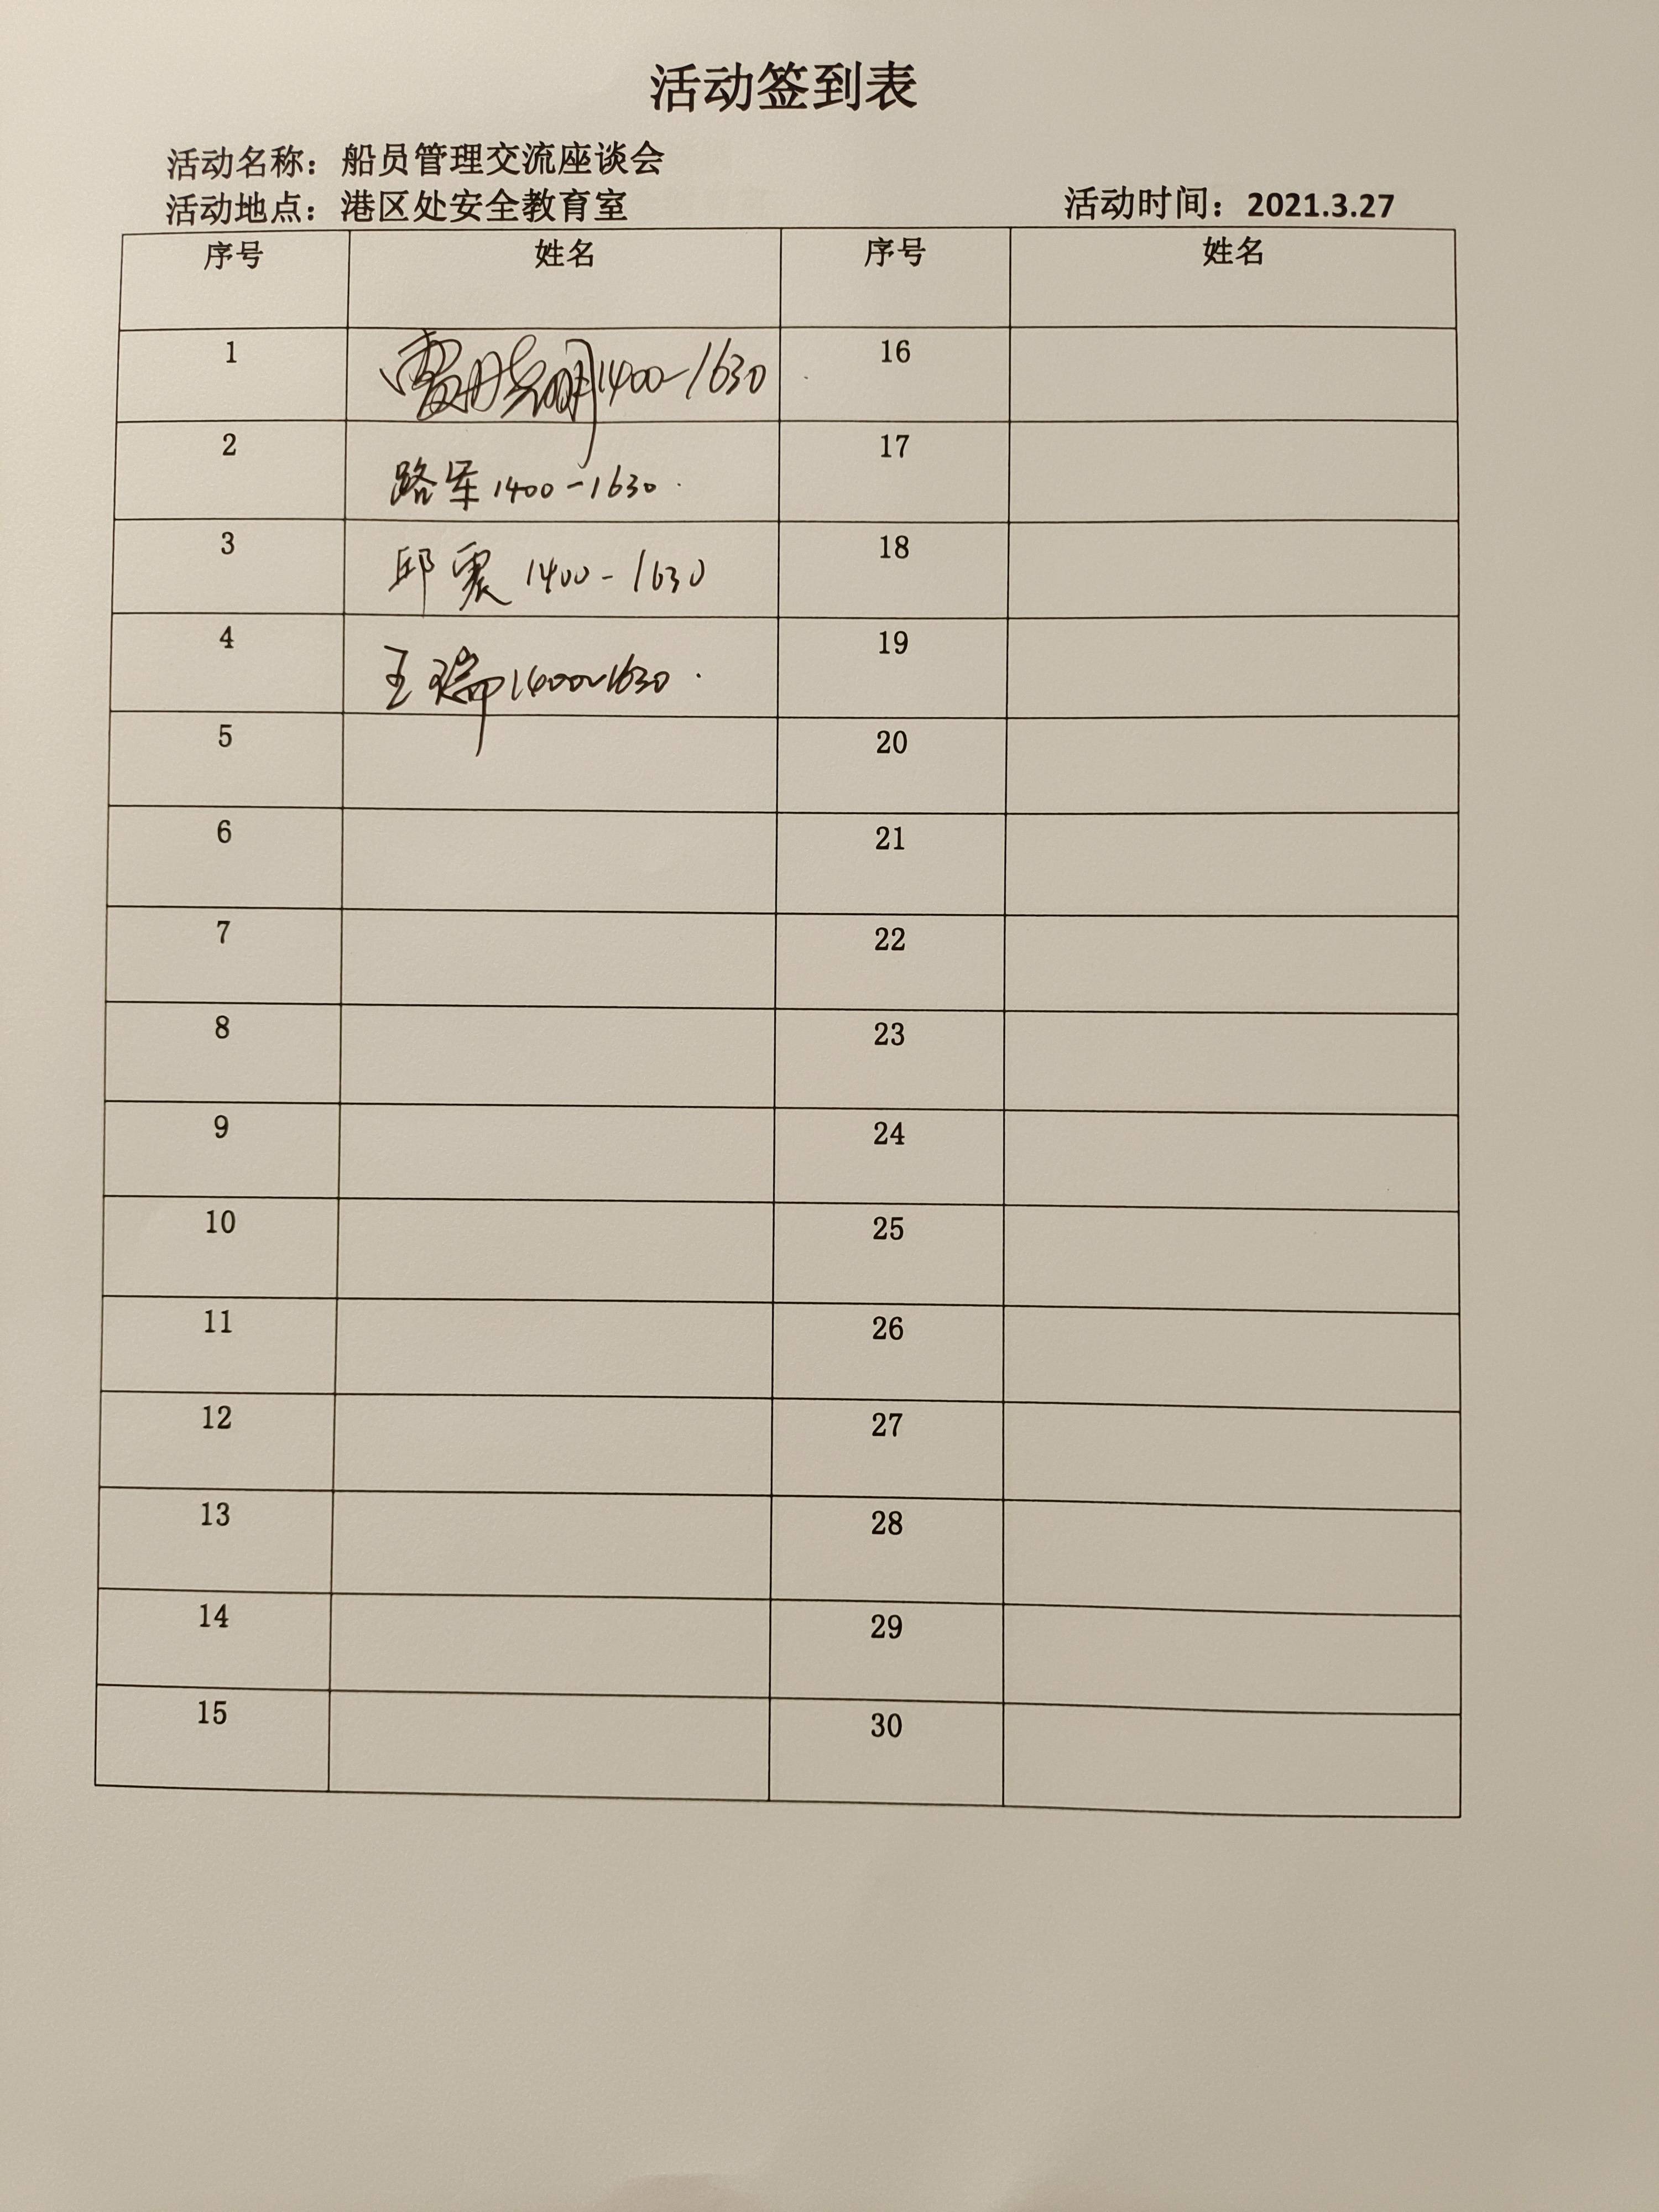 活动签到表
活动名称：船员管理交流座谈会
活动地点：港区处安全教育室 活动时间：2021.3.27
序号 姓名 序号 姓名
1 1400-1630 16
2 路军 1400-1630 17
3 邱震 1400-1630 18
4 王瑞 1400~1630 19
5 20
6 21
7 22
8 23
9 24
10 25
11 26
12 27
13 28
14 29
15 30